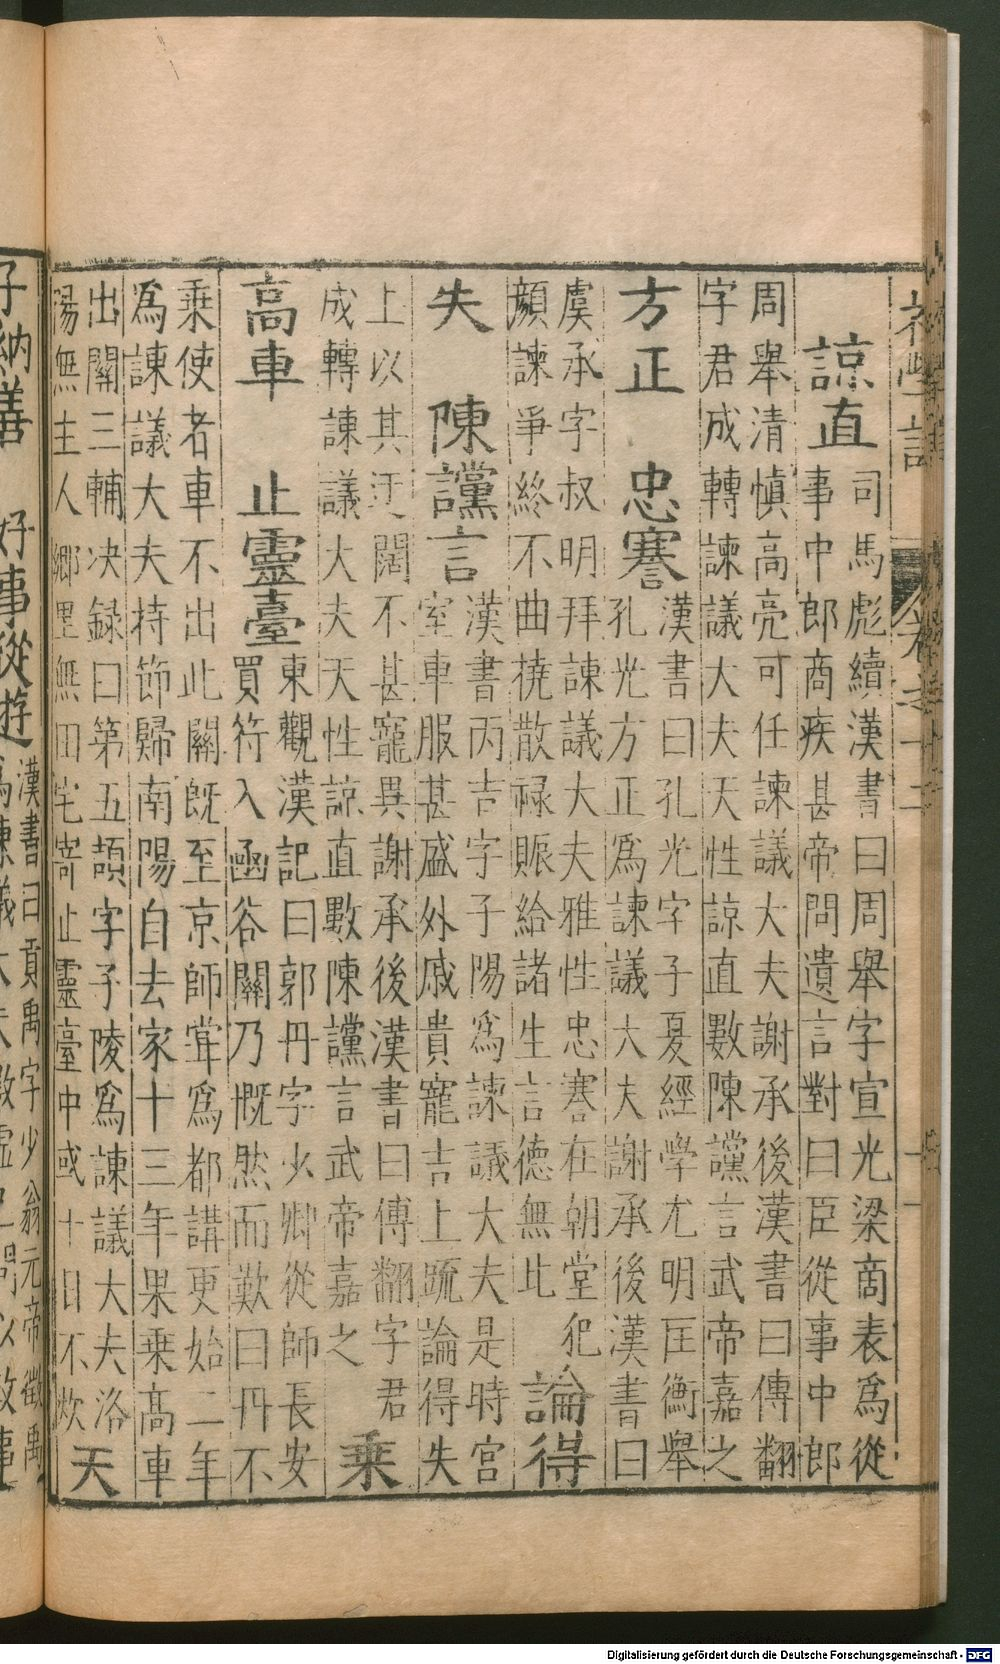 諒直
司馬彪續漢書曰周舉字宣光梁商表爲從
事中郎商疾甚帝問遺言對曰臣從事中郎
周舉清慎高亮可任諫議大夫謝承後漢書曰傅翻
字君成轉諫議大夫天性諒直數陳讜言武帝嘉之
方正
忠謇
漢書曰孔光字子夏經學尤明匡衡舉
孔光方正爲諫議大夫謝承後漢書曰
虞承字叔明拜諫議大夫雅性忠謇在朝堂犯
顔諫爭終不曲撓散禄賑給諸生言德無比
論得
失
陳讜言
漢書丙吉字子陽爲諫議大夫是時宮
室車服甚盛外戚貴寵吉上疏論得失
上以其迂闊不甚寵異謝承後漢書曰傅翻字君
成轉諫議大夫天性諒直數陳讜言武帝嘉之
乗
高車
止靈臺
東觀漢記曰郭丹字少卿從師長安
買符入函谷關乃慨然而歎曰丹不
乗使者車不出此關既至京師甞爲都講更始二年
爲諫議大夫持節歸南陽自去家十三年果乗高車
出關三輔决録曰第五頡字子陵爲諫議大夫洛
陽無主人鄉里無田宅寄止靈臺中或十日不炊
天
子納善
好事從遊
漢書曰貢禹字少翁元帝徵禹
Digitalisierung gefördert durch die Deutsche Forschungsgemeinschaft - DFG